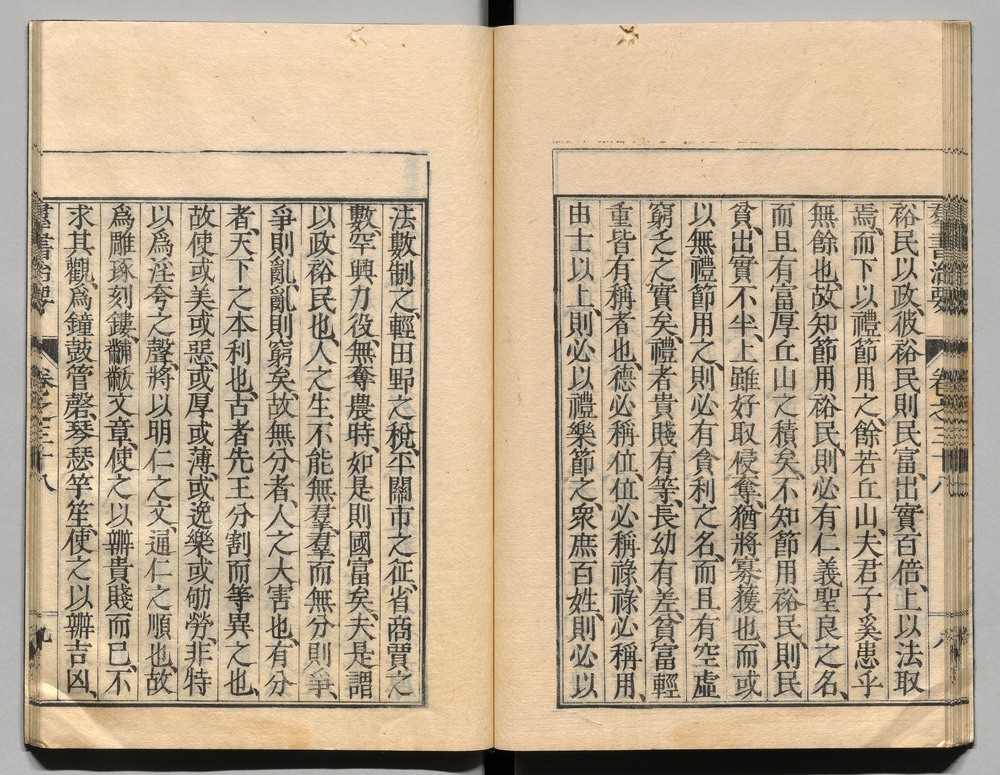 裕民以政、彼裕民則民富、出實百倍、上以法取
焉、而下以禮節用之、餘若丘山、夫君子奚患乎
無餘也、故知節用裕民、則必有仁義聖良之名、
而且有富厚丘山之積矣、不知節用裕民、則民
貧、出實不半、上雖好取侵奪、猶將寡獲也、而或
以無禮節用之、則必有貪利之名、而且有空虛
窮乏之實矣、禮者貴賤有等、長幼有差、貧富輕
重皆有稱者也、德必稱位、位必稱祿、祿必稱用、
由士以上、則必以禮樂節之、衆庶百姓、則必以
法數制之、輕田野之稅、平關市之征、省商賈之
數、罕興力役、無奪農時、如是則國富矣、夫是謂
以政裕民也、人之生不能無羣、羣而無分則爭、
爭則亂、亂則窮矣、故無分者、人之大害也、有分
者、天下之本利也、古者先王分割而等異之也、
故使或美或惡、或厚或薄、或逸樂或劬勞、非特
以爲淫夸之聲、將以明仁之文、通仁之順也、故
爲雕琢刻鏤、黼黻文章、使之以辨貴賤而已、不
求其觀、爲鐘鼓管磬、琴瑟竽笙、使之以辨吉凶、
群書治要 卷之三十八 九